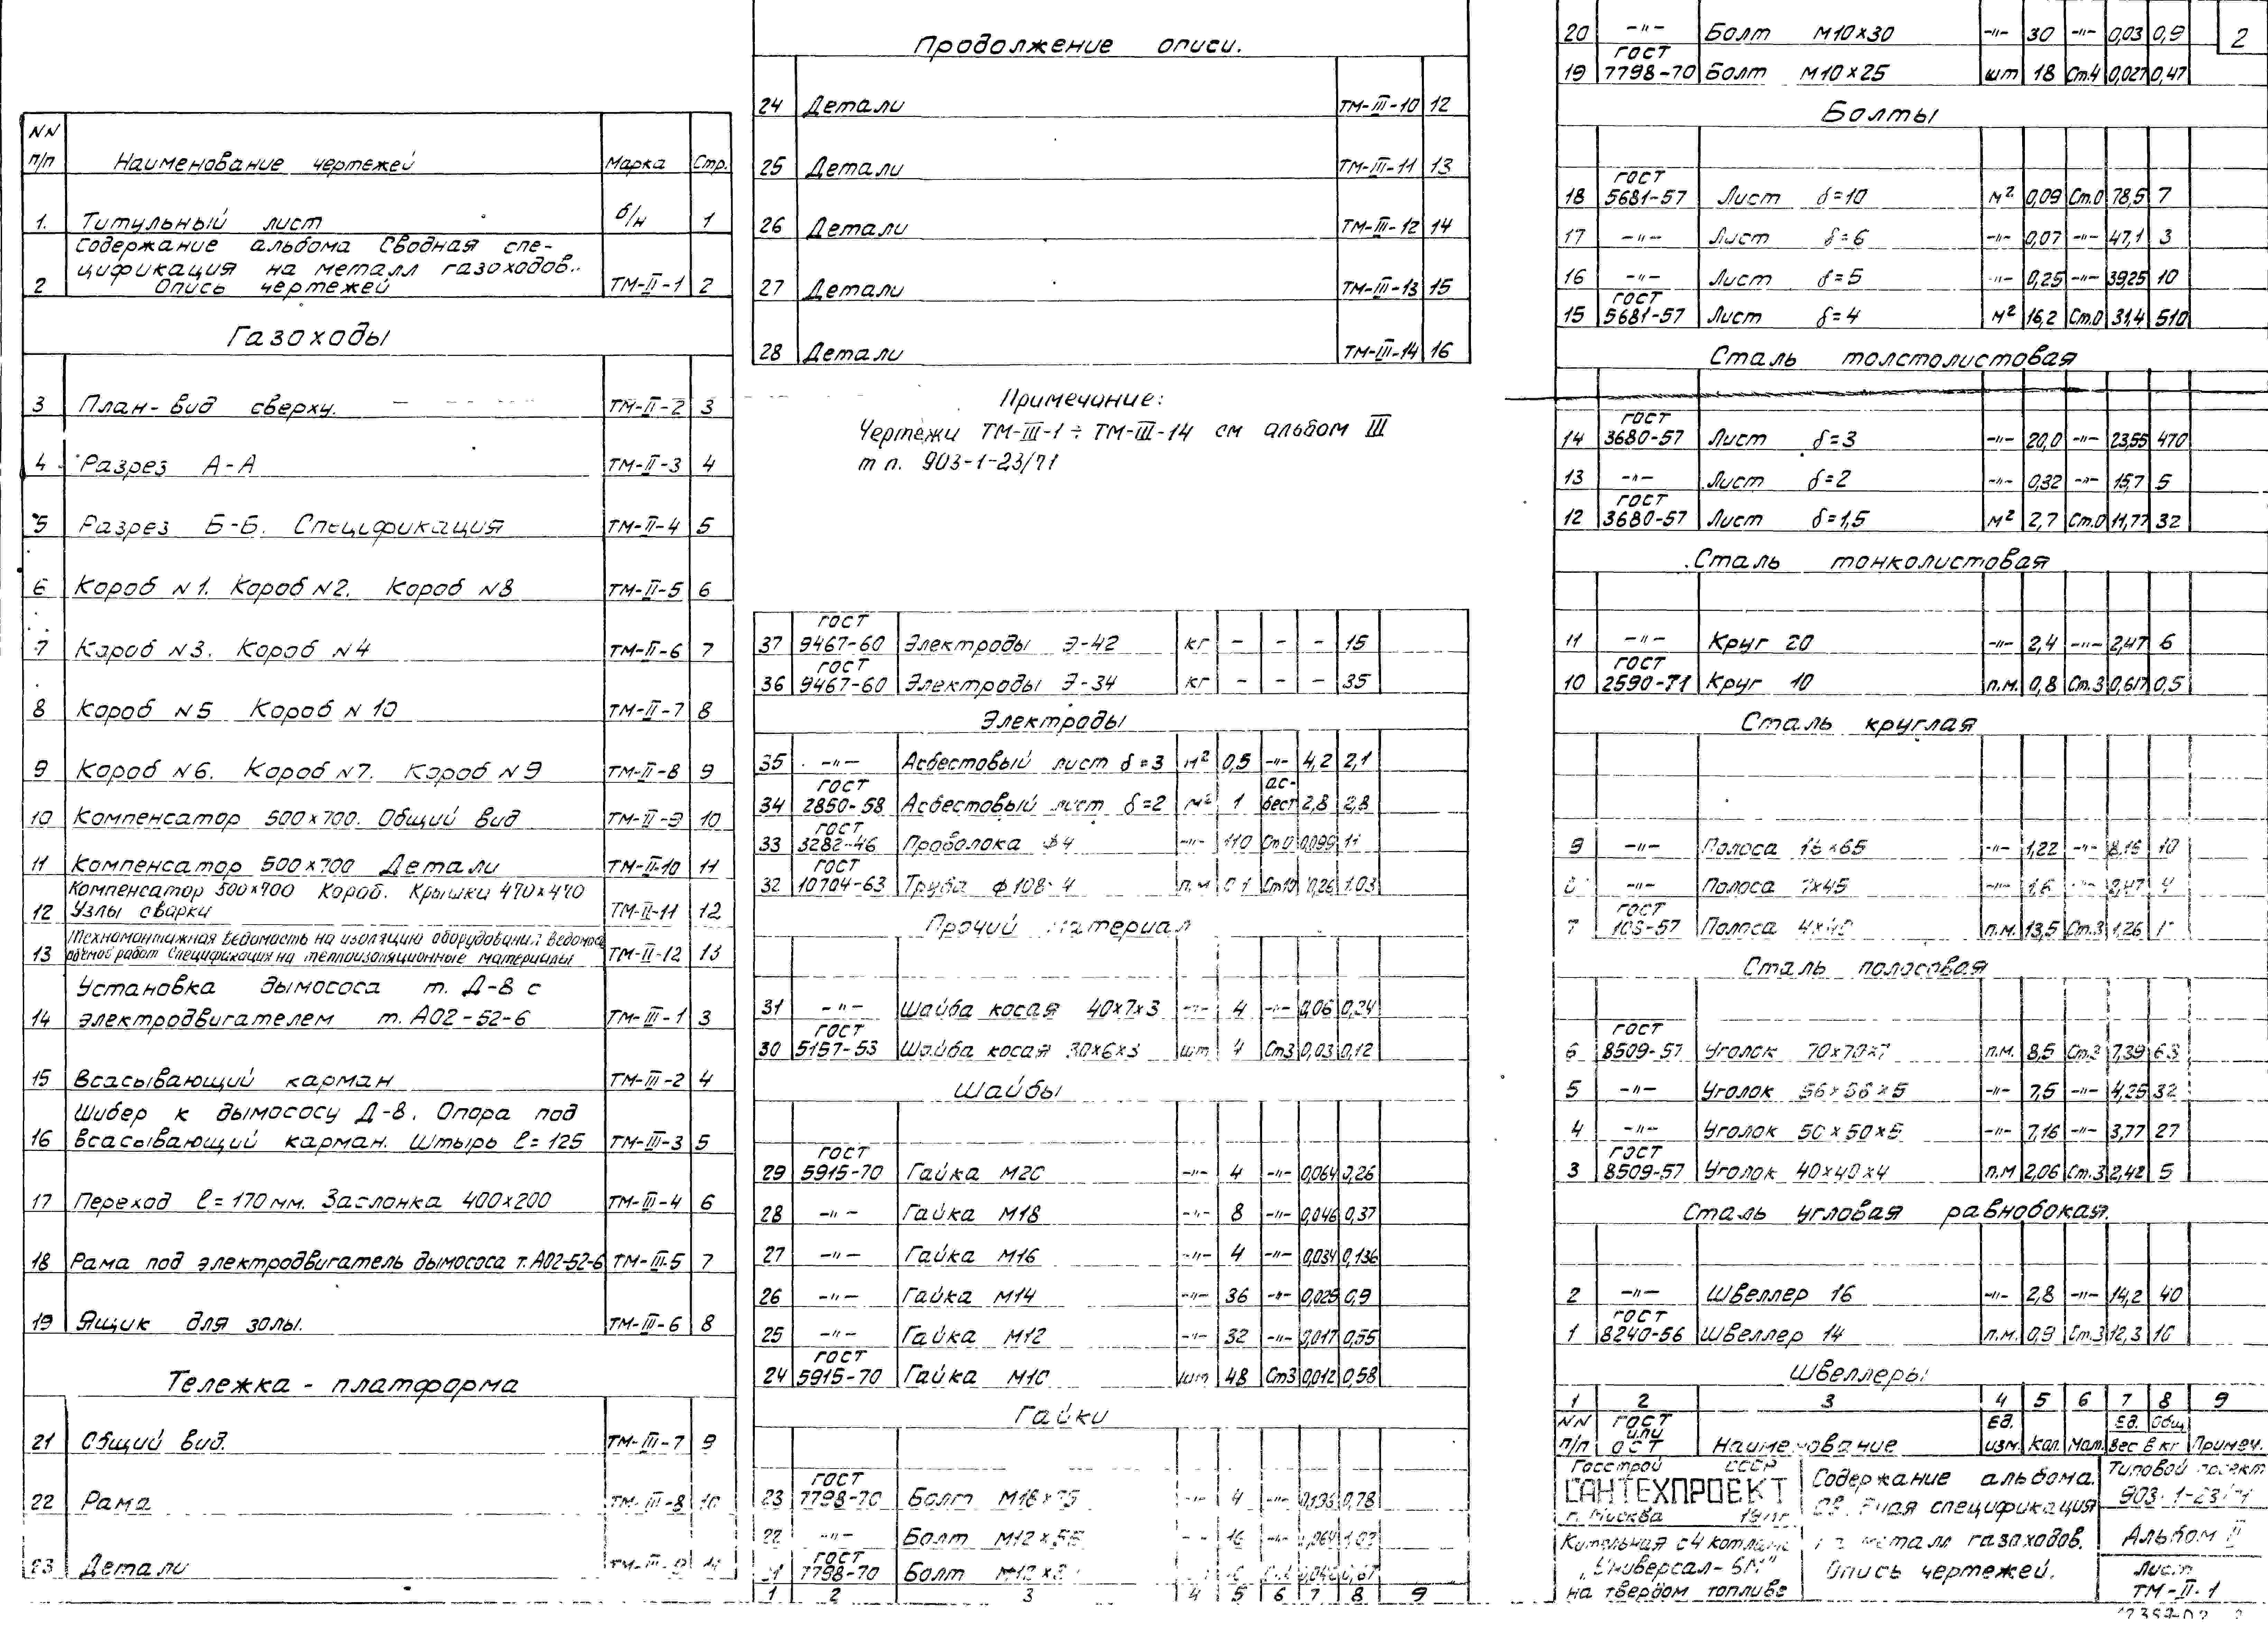 NN п/п Наименование чертежей Марка Стр.
1. Титульный лист б/н 1
Содержание альбома Сводная спе-
цификация на металл газоходов.
2 Опись чертежей ТМ-II-1 2
Газоходы
3 План-вид сверху. ТМ-II-2 3
4 Разрез А-А ТМ-II-3 4
5 Разрез Б-Б. Спецификация ТМ-II-4 5
6 Короб N1. Короб N2. Короб N8 ТМ-II-5 6
7 Короб N3. Короб N4 ТМ-II-6 7
8 Короб N5 Короб N10 ТМ-II-7 8
9 Короб N6. Короб N7. Короб N9 ТМ-II-8 9
10 Компенсатор 500×700. Общий вид ТМ-II-9 10
11 Компенсатор 500×700 Детали ТМ-II-10 11
Компенсатор 500×700 Короб. Крышки 470×470
12 Узлы сварки ТМ-II-11 12
Техномонтажная ведомость на изоляцию оборудования ведомость
13 объемов работ Спецификация на теплоизоляционные материалы ТМ-II-12 13
Установка дымососа т. Д-8 с
14 электродвигателем т. А02-52-6 ТМ-III-1 3
15 Всасывающий карман ТМ-III-2 4
Шибер к дымососу Д-8. Опора под
16 всасывающий карман. Штырь ℓ=125 ТМ-III-3 5
17 Переход ℓ=170мм. Заслонка 400×200 ТМ-III-4 6
18 Рама под электродвигатель дымососа т. А02-52-6 ТМ-III-5 7
19 Ящик для золы. ТМ-III-6 8
Тележка - платформа
21 Общий вид. ТМ-III-7 9
22 Рама ТМ-III-8 10
23 Детали ТМ-III-9 11
Продолжение описи.
24 Детали ТМ-III-10 12
25 Детали ТМ-III-11 13
26 Детали ТМ-III-12 14
27 Детали ТМ-III-13 15
28 Детали ТМ-III-14 16
Примечание:
Чертежи ТМ-III-1 ÷ ТМ-III-14 см альбом III
т п. 903-1-23/71
37 ГОСТ 9467-60 Электроды Э-42 кг - - - 15
36 ГОСТ 9467-60 Электроды Э-34 кг - - - 35
Электроды
35 -"- Асбестовый лист δ=3 м² 0,5 -"- 4,2 2,1
34 ГОСТ 2850-58 Асбестовый лист δ=2 м² 1 ас-бест 2,8 2,8
33 ГОСТ 3282-46 Проволока ф4 -"- 110 Ст.0 0,099 11
32 ГОСТ 10704-63 Труба ф108×4 п.м 0,1 Ст10 1,03
Прочий материал
31 -"- Шайба косая 40×7×3 -"- 4 -"- 0,06 0,24
30 ГОСТ 5157-53 Шайба косая 30×6×3 шт 4 Ст3 0,03 0,12
Шайбы
29 ГОСТ 5915-70 Гайка М20 -"- 4 -"- 0,064 0,26
28 -"- Гайка М18 -"- 8 -"- 0,046 0,37
27 -"- Гайка М16 -"- 4 -"- 0,034 0,136
26 -"- Гайка М14 -"- 36 -"- 0,025 0,9
25 -"- Гайка М12 -"- 32 -"- 0,017 0,55
24 ГОСТ 5915-70 Гайка М10 шт 48 Ст3 0,012 0,58
Гайки
23 ГОСТ 7798-70 Болт -"- 4 -"- 0,78
22 -"- Болт М12×55 16 -"- 0,064
21 ГОСТ 7798-70 Болт
1 2 3 4 5 6 7 8 9
2
20 -"- Болт М10×30 -"- 30 -"- 0,03 0,9
19 ГОСТ 7798-70 Болт М10×25 шт 18 Ст.4 0,027 0,47
Болты
18 ГОСТ 5681-57 Лист δ=10 м² 0,09 Ст.0 78,5 7
17 -"- Лист δ=6 -"- 0,07 -"- 47,1 3
16 -"- Лист δ=5 -"- 0,25 -"- 39,25 10
15 ГОСТ 5681-57 Лист δ=4 м² 16,2 Ст.0 31,4 510
Сталь толстолистовая
14 ГОСТ 3680-57 Лист δ=3 -"- 20,0 -"- 23,55 470
13 -"- Лист δ=2 -"- 0,32 -"- 15,7 5
12 ГОСТ 3680-57 Лист δ=1,5 м² 2,7 Ст.0 11,77 32
Сталь тонколистовая
11 -"- Круг 20 -"- 2,4 -"- 2,47 6
10 ГОСТ 2590-71 Круг 10 п.м. 0,8 Ст.3 0,617 0,5
Сталь круглая
9 -"- Полоса 16×65 -"- 1,22 -"- 8,16 10
8 -"- Полоса 7×45 -"- 1,6 -"- 2,47 4
7 ГОСТ 103-57 Полоса 4×40 п.м. 13,5 Ст.3 1,26
Сталь полосовая
6 ГОСТ 8509-57 Уголок 70×70×7 п.м. 8,5 Ст.3 7,39 63
5 -"- Уголок 56×56×5 -"- 7,5 -"- 4,25 32
4 -"- Уголок 50×50×5 -"- 7,16 -"- 3,77 27
3 ГОСТ 8509-57 Уголок 40×40×4 п.м 2,06 Ст.3 2,42 5
Сталь угловая равнобокая.
2 -"- Швеллер 16 -"- 2,8 -"- 14,2 40
1 ГОСТ 8240-56 Швеллер 14 п.м. 0,9 Ст.3 12,3 10
Швеллеры
1 2 3 4 5 6 7 8 9
NN п/п ГОСТ или ОСТ Наименование Ед. изм. Кол. Мат. Ед. Общ Вес в кг Примеч.
Госстрой СССР
САНТЕХПРОЕКТ
г. Москва
Котельная с 4 котлами
"Универсал-6М"
на твердом топливе
Содержание альбома.
Сводная спецификация
на металл газоходов.
Опись чертежей.
Типовой проект
903-1-23/71
Альбом II
Лист
ТМ-II-1